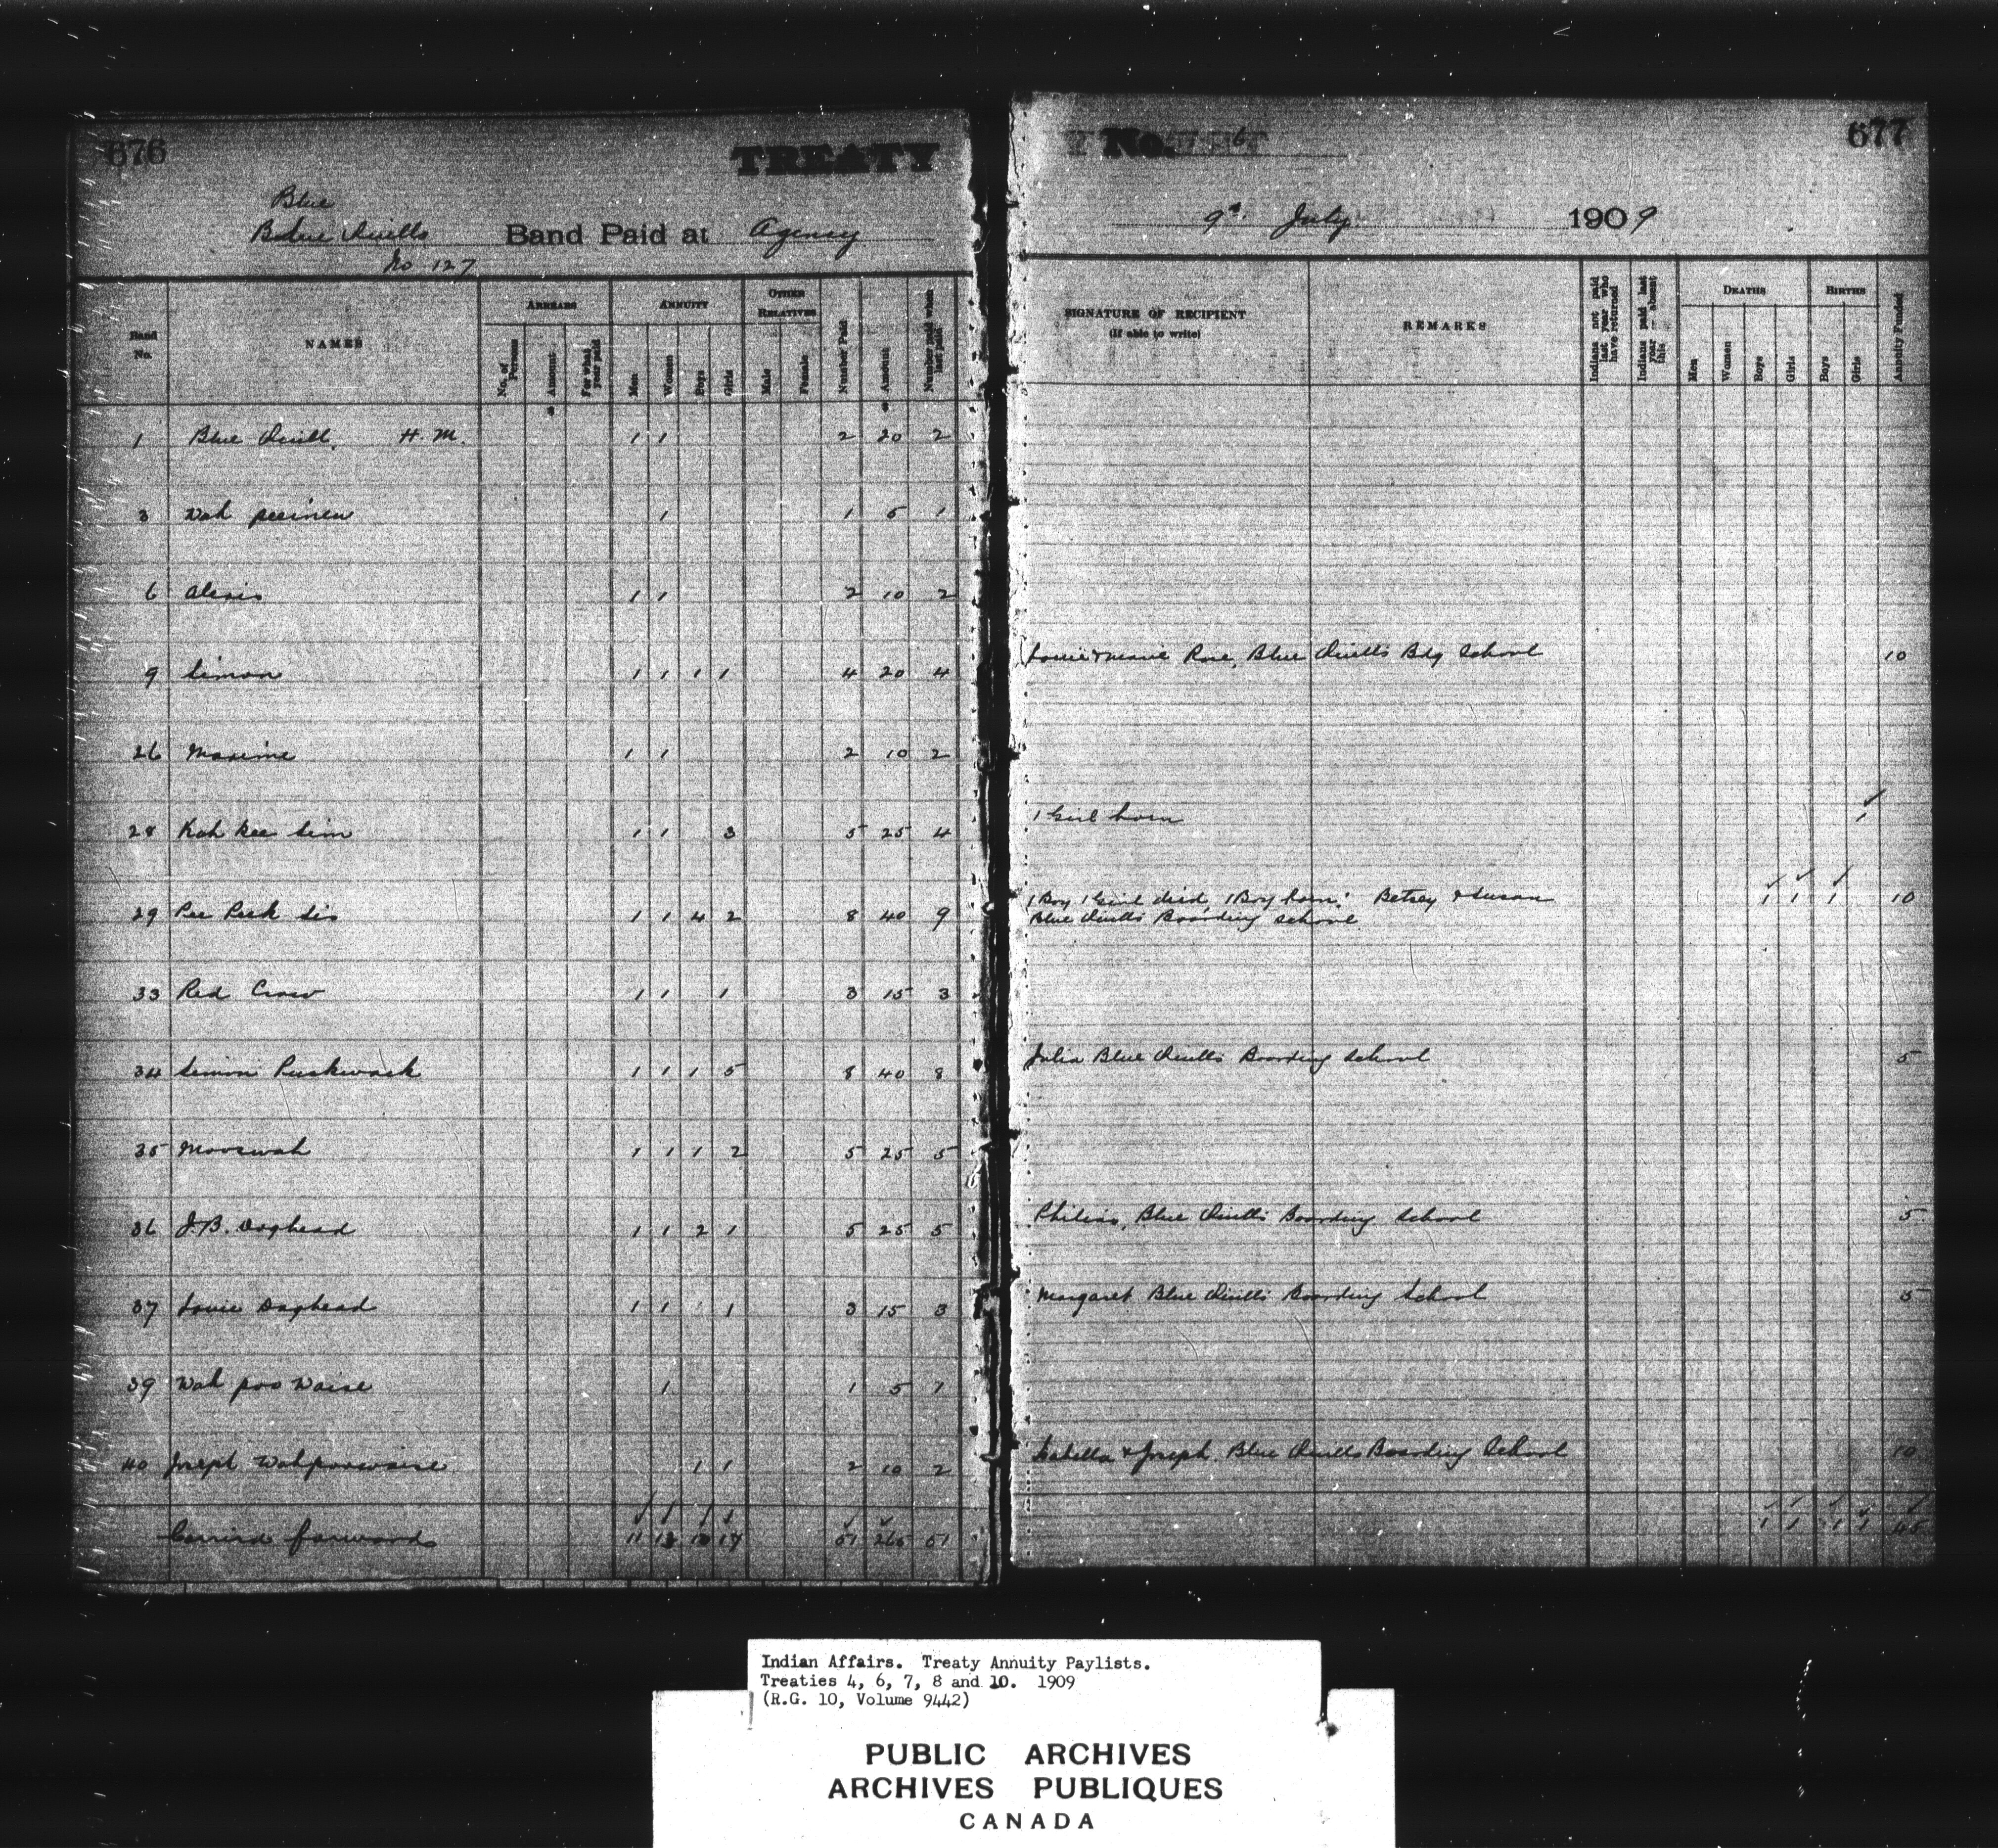 676
TREATY
Blue
Blue Quills Band Paid at Agency
No 127
Band No.
NAMES
ARREARS
No. of Persons
Amount
For what year paid
ANNUITY
Men
Women
Boys
Girls
OTHER RELATIVES
Male
Female
Number Paid
$ Amount
Number paid when last paid
1 Blue Quill H.M. 1 1 2 20 2
3 Wah peeinew 1 1 5 1
6 Alexis 1 1 2 10 2
9 Simon 1 1 1 1 4 20 4
26 Maxime 1 1 2 10 2
28 Kah kee sim 1 1 3 5 25 4
29 Pee Peek sis 1 1 4 2 8 40 9
33 Red Crow 1 1 1 3 15 3
34 Simon Puskwask 1 1 1 5 8 40 8
35 Mooswah 1 1 1 2 5 25 5
36 J.B. Doghead 1 1 2 1 5 25 5
37 Louie Doghead 1 1 1 3 15 3
39 Wah poo Waise 1 1 5 1
40 Joseph Wahpoowaise 1 1 2 10 2
Carried forward 11 13 10 17 51 265 51
No. 6
677
9th July 1909
SIGNATURE OF RECIPIENT
(If able to write)
REMARKS
Indians not paid last year who have returned
Indians paid last year – absent this
DEATHS
Men
Women
Boys
Girls
BIRTHS
Boys
Girls
Annuity Funded
Louie & Marie Rose, Blue Quills Bdg School 10
1 Girl born 1
1 Boy 1 Girl died, 1 Boy born. Betsey & Susan 1 1 1 10
Blue Quills Boarding School
Julia Blue Quills Boarding School 5
Blue Quills Boarding School 5
Margaret Blue Quills Boarding School 5
Isabella & Joseph. Blue Quills Boarding School 10
1 1 1 1 45
Indian Affairs. Treaty Annuity Paylists.
Treaties 4, 6, 7, 8 and 10. 1909
(R.G. 10, Volume 9442)
PUBLIC ARCHIVES
ARCHIVES PUBLIQUES
CANADA